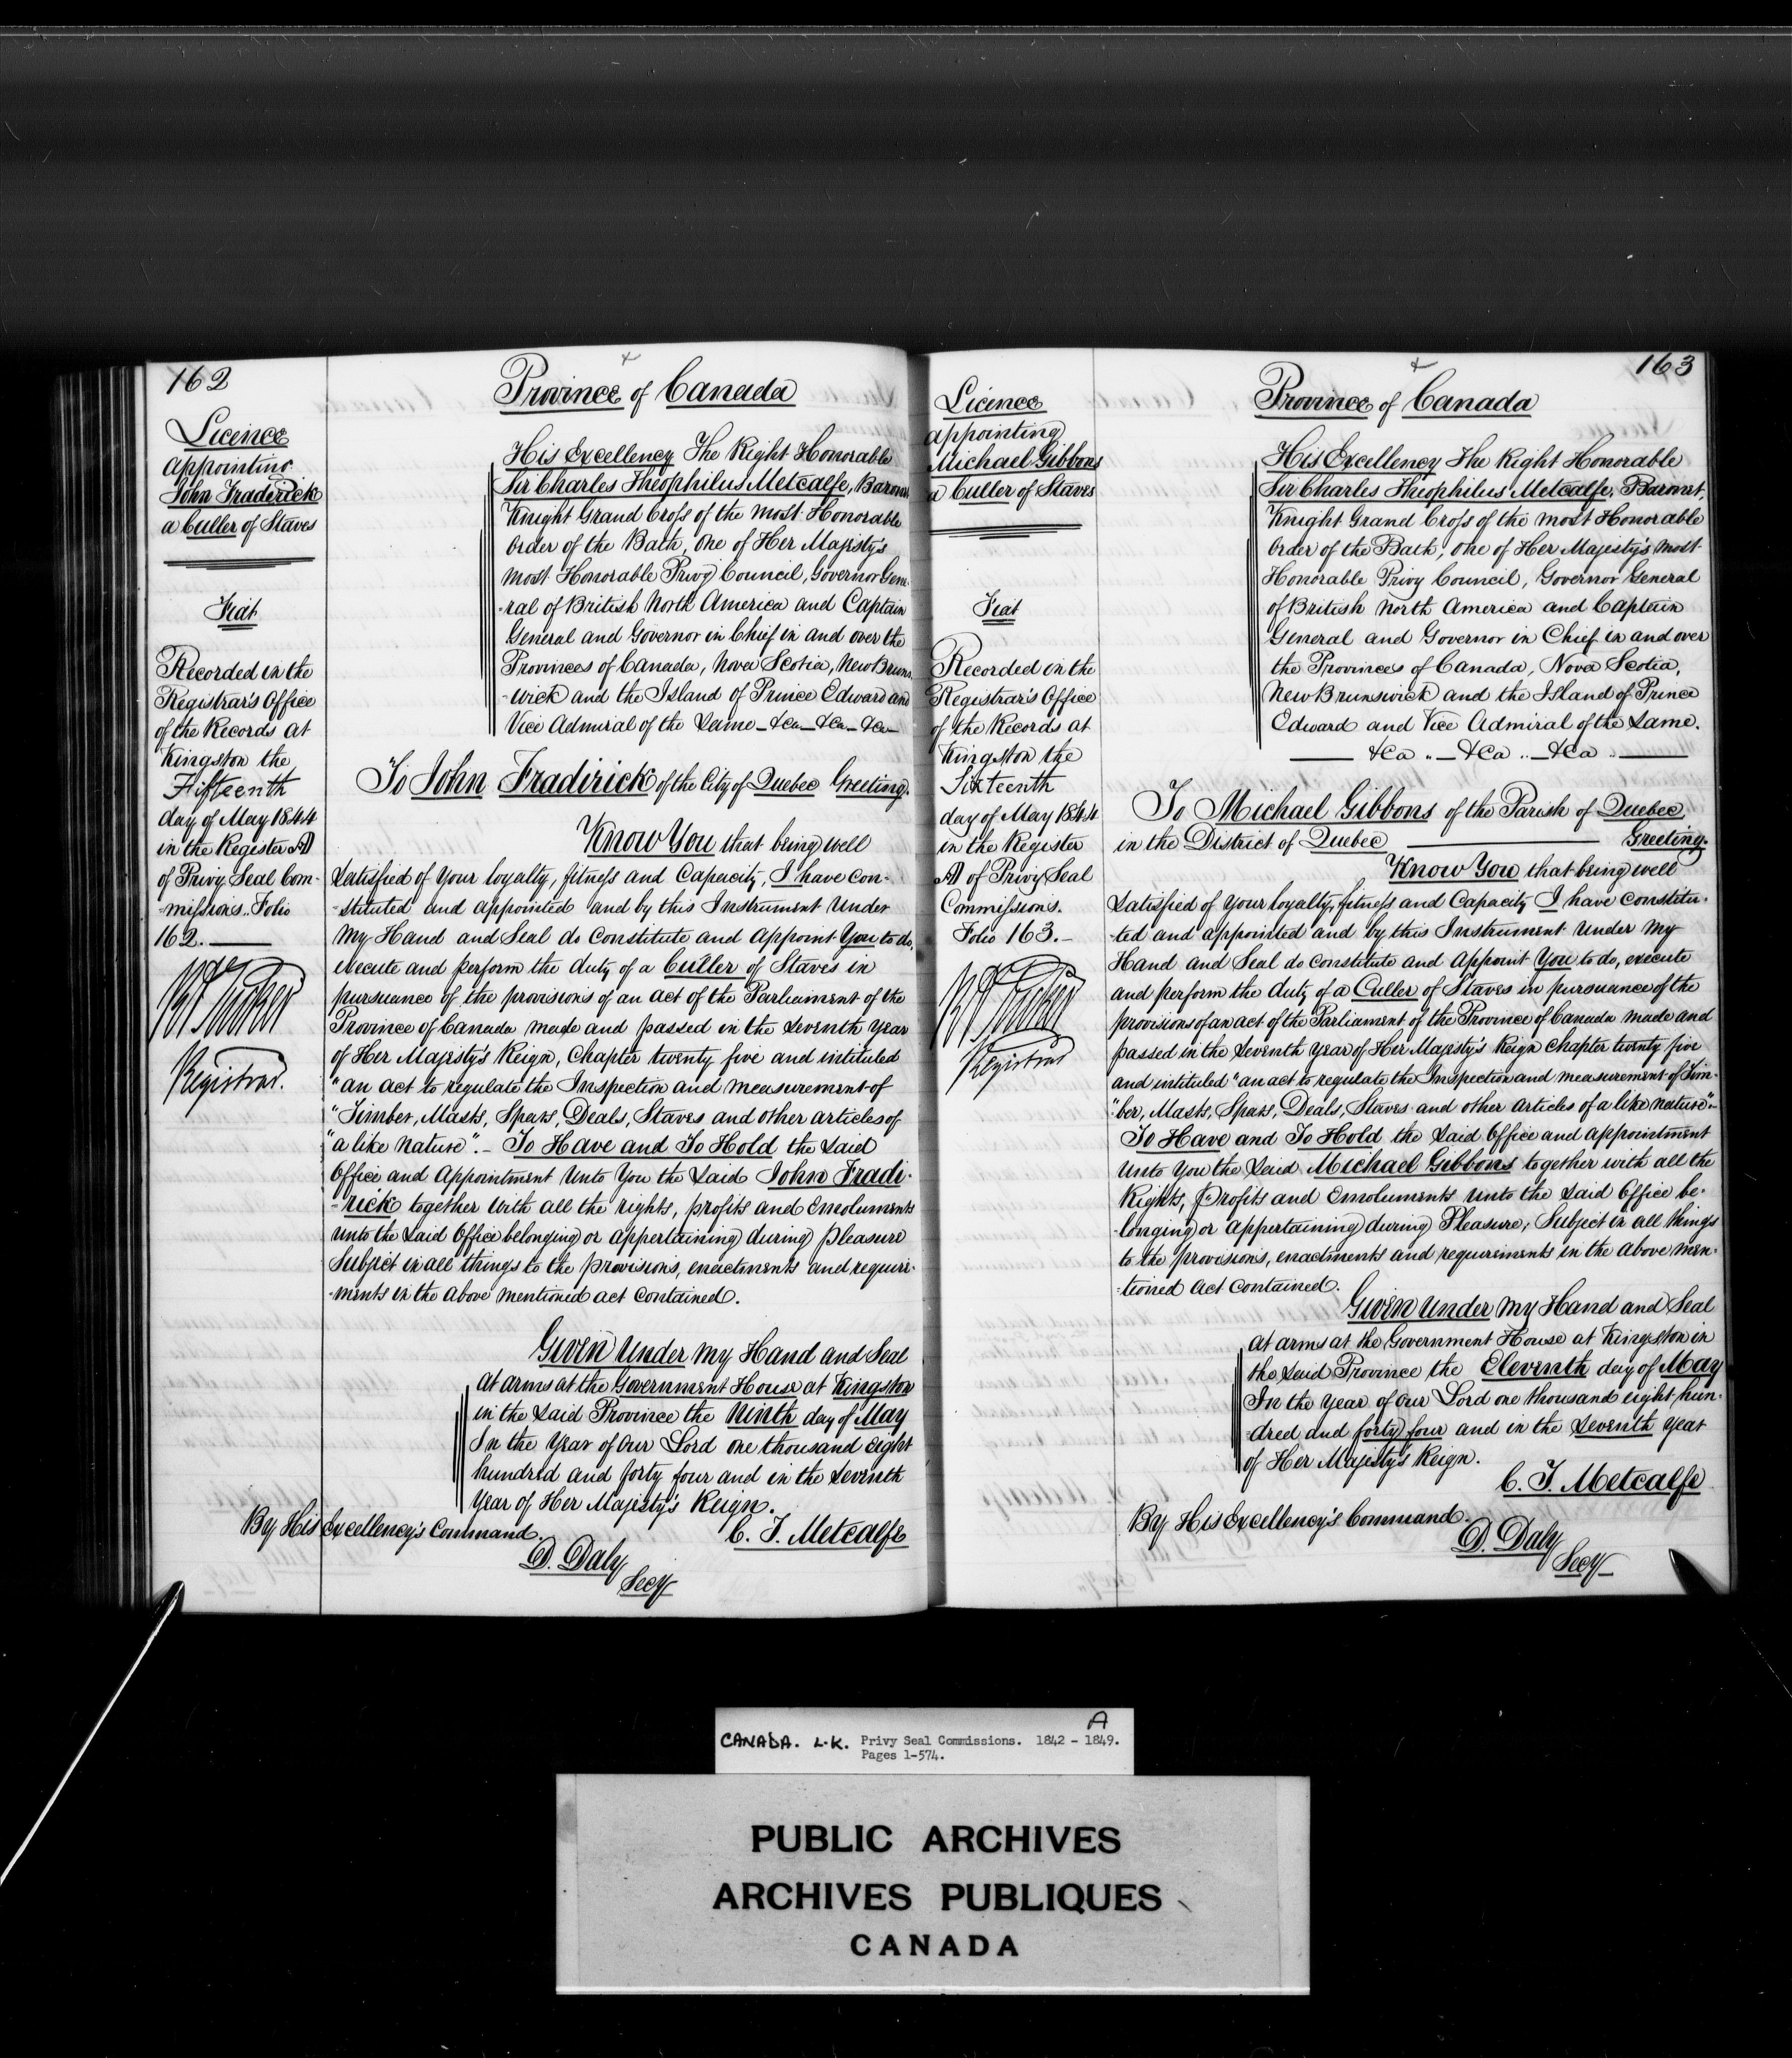 162
Licence
appointing
John Fraderick
a Culler of Staves
Fiat
Recorded in the
Registrar's Office
of the Records at
Kingston the
Fifteenth
day of May 1844
in the Register A
of Privy Seal Com-
-missions.. Folio
162.
Registrar.
Province of Canada
His Excellency The Right Honorable
Sir Charles Theophilus Metcalfe, Baronet
Knight Grand Cross of the most Honorable
Order of the Bath, One of Her Majesty's
most Honorable Privy Council, Governor Gene-
-ral of British North America and Captain
General and Governor in Chief in and over the
Provinces of Canada, Nova Scotia, New Bruns-
-wick and the Island of Prince Edward and
Vice Admiral of the Same — &ca — &ca — &ca —
To John Fradirick of the City of Quebec Greeting.
Know You that being well
Satisfied of your loyalty, fitness and Capacity, I have Con-
-stituted and appointed and by this Instrument Under
my Hand and Seal do Constitute and appoint You to do,
execute and perform the duty of a Culler of Staves in
pursuance of the provisions of an act of the Parliament of the
Province of Canada made and passed in the Seventh Year
of Her Majesty's Reign, Chapter twenty five and intituled
"an act to regulate the Inspection and measurement of
"Timber, Masts, Spars, Deals, Staves and other articles of
"a like nature". – To Have and To Hold the Said
Office and Appointment Unto You the Said John Fradi-
-rick together with all the rights, profits and Emoluments
unto the Said Office belonging or appertaining during pleasure
Subject in all things to the provisions, enactments and require-
-ments in the above mentioned act contained.
Given Under my Hand and Seal
at arms at the Government House at Kingston
in the Said Province the Ninth day of May
In the Year of Our Lord one thousand eight
hundred and forty four and in the Seventh
Year of Her Majesty's Reign.
By His Excellency's Command.
C. T. Metcalfe
D. Daly
Secy
163
Licence
appointing
Michael Gibbons
a Culler of Staves
Fiat
Recorded in the
Registrar's Office
of the Records at
Kingston the
Sixteenth
day of May 1844
in the Register
A of Privy Seal
Commissions.
Folio 163. –
Registrar
Province of Canada
His Excellency The Right Honorable
Sir Charles Theophilus Metcalfe, Baronet,
Knight Grand Cross of the most Honorable
Order of the Bath, One of Her Majesty's most
Honorable Privy Council, Governor General
of British North America and Captain
General and Governor in Chief in and over
the Provinces of Canada, Nova Scotia,
New Brunswick and the Island of Prince
Edward and Vice Admiral of the Same.
— &ca .. — &ca .. — &ca .. —
To Michael Gibbons of the Parish of Quebec
in the District of Quebec — Greeting.
Know You that being well
Satisfied of your loyalty, fitness and Capacity I have constitu-
-ted and appointed and by this Instrument under my
Hand and Seal do constitute and appoint You to do, execute
and perform the duty of a Culler of Staves in pursuance of the
provisions of an act of the Parliament of the Province of Canada made and
passed in the Seventh year of Her Majesty's Reign Chapter twenty five
and intituled "an act to regulate the Inspection and measurement of Tim-
"ber, Masts, Spars, Deals, Staves and other articles of a like nature".–
To Have and To Hold the Said Office and appointment
unto you the Said Michael Gibbons together with all the
Rights, Profits and Emoluments unto the Said Office be-
-longing or appertaining during Pleasure, Subject in all things
to the provisions, enactments and requirements in the above men-
-tioned act contained.
Given under my Hand and Seal
at arms at the Government House at Kingston in
the Said Province the Eleventh day of May
In the year of our Lord one thousand eight hun-
-dred and forty four and in the Seventh year
of Her Majesty's Reign.
C. T. Metcalfe
By His Excellency's Command.
D. Daly
Secy
A
CANADA. L.K. Privy Seal Commissions. 1842 - 1849.
Pages 1-574.
PUBLIC ARCHIVES
ARCHIVES PUBLIQUES
CANADA